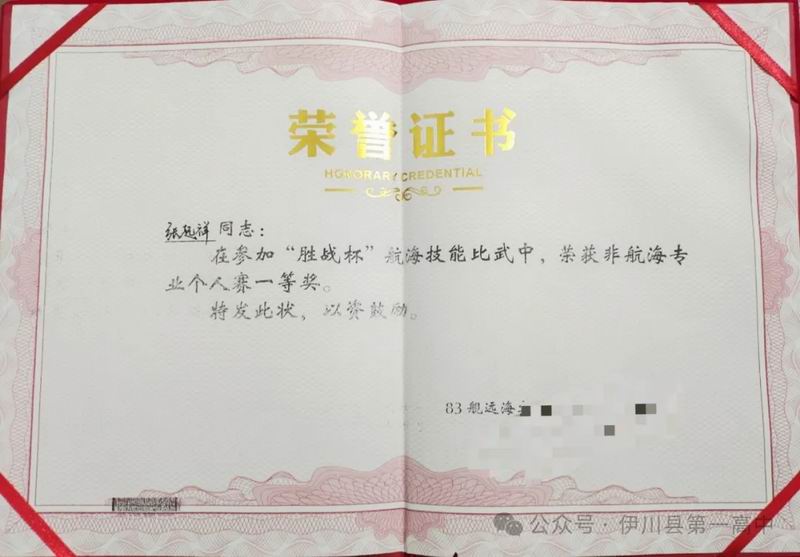 荣誉证书
HONORARY CREDENTIAL
张旭祥同志：
在参加“胜战杯”航海技能比武中，荣获非航海专
业个人赛一等奖。
特发此状，以资鼓励。
83舰远海
公众号·伊川县第一高中